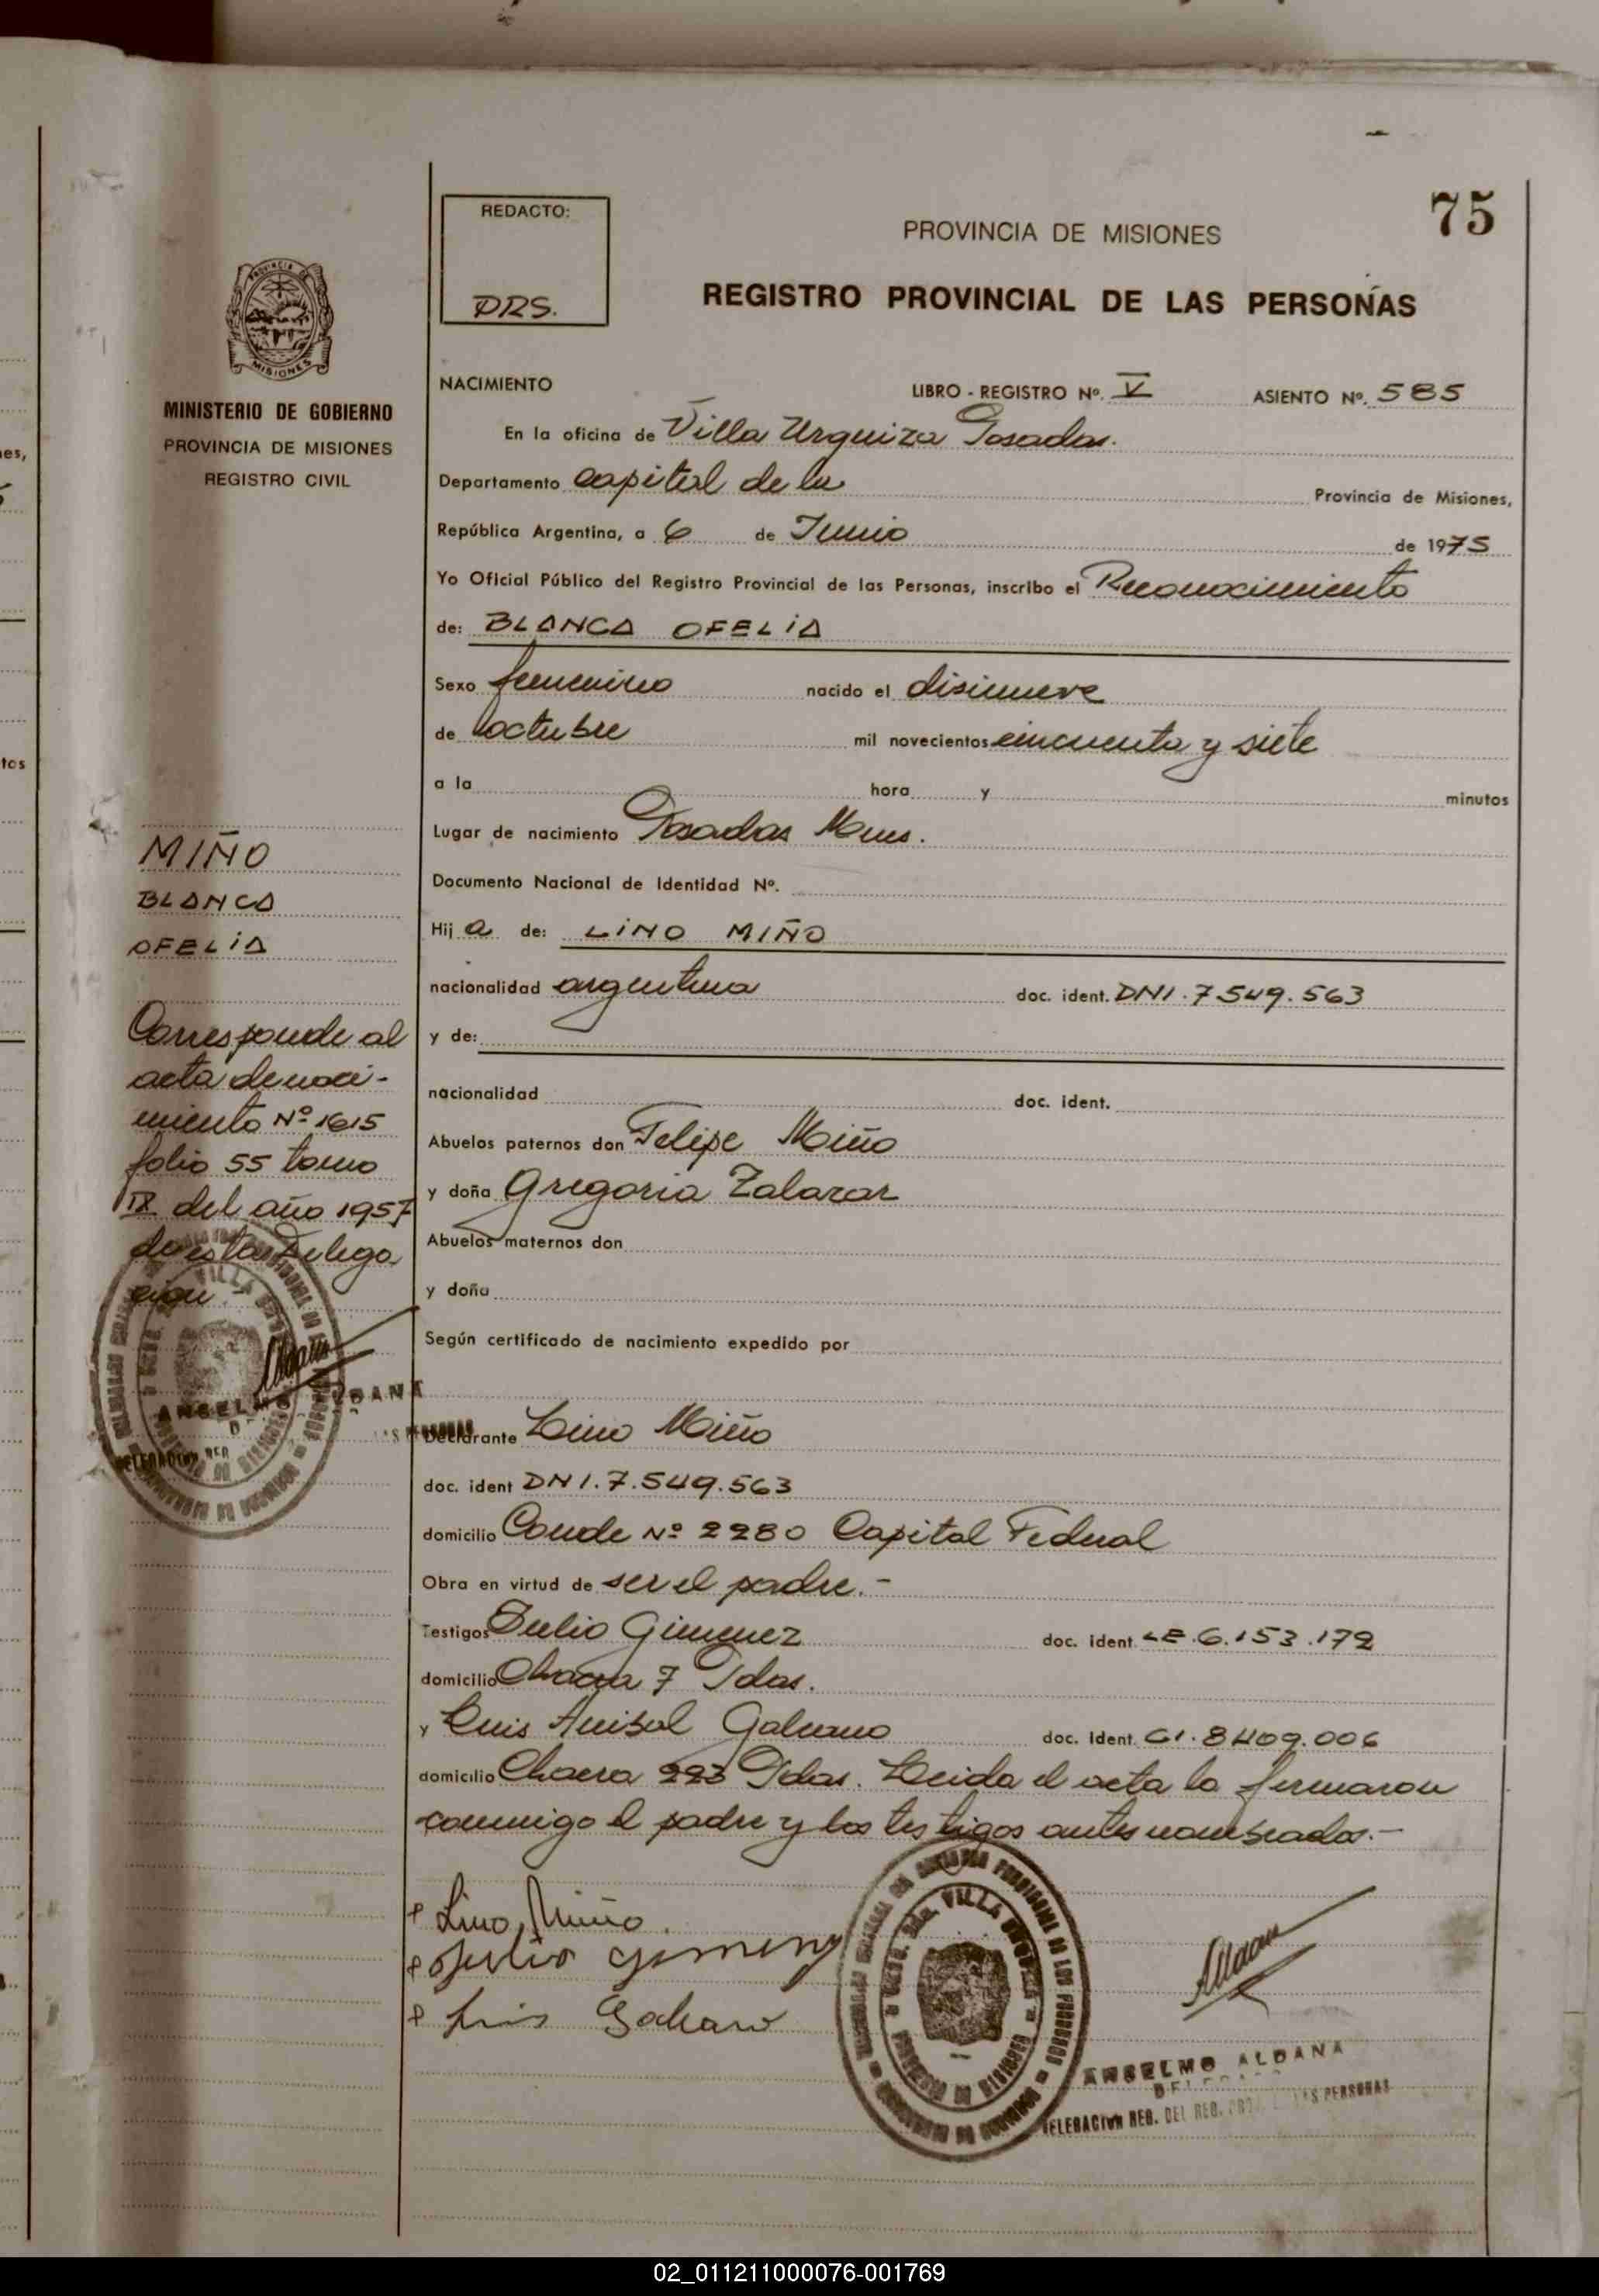 75
REDACTO:
DRS.
PROVINCIA DE MISIONES
REGISTRO PROVINCIAL DE LAS PERSONAS
PROVINCIA DE
MISIONES
MINISTERIO DE GOBIERNO
PROVINCIA DE MISIONES
REGISTRO CIVIL
NACIMIENTO LIBRO - REGISTRO Nº. V ASIENTO Nº. 585
En la oficina de Villa Urquiza Posadas.
Departamento capital de la Provincia de Misiones,
República Argentina, a 6 de Junio de 1975
Yo Oficial Público del Registro Provincial de las Personas, inscribo el Reconocimiento
de: BLANCA OFELIA
Sexo femenino nacido el disinueve
de octubre mil novecientos cincuenta y siete
a la hora y minutos
Lugar de nacimiento Posadas Mnes.
Documento Nacional de Identidad Nº.
Hija de: LINO MIÑO
nacionalidad argentina doc. ident. DNI. 7.549.563
y de:
nacionalidad doc. ident.
Abuelos paternos don Felipe Miño
y doña Gregoria Zalazar
Abuelos maternos don
y doña
Según certificado de nacimiento expedido por
Declarante Lino Miño
doc. ident DNI. 7.549.563
domicilio Conde Nº 2280 Capital Federal
Obra en virtud de ser el padre.-
Testigos Julio Gimenez doc. ident. LE. 6.153.172
domicilio Chacra 7 Pdas.
y Luis Anibal Galeano doc. ident. CI. 8409.006
domicilio Chacra 223 Pdas. Leida el acta la firmaron
conmigo el padre y los testigos antes nombrados.-
MIÑO
BLANCA
OFELIA
Corresponde al
acta de naci-
miento Nº 1615
folio 55 tomo
IX del año 1957
de esta Delega
cion.-
ANSELMO ALDANA
Lino Miño.
Julio Gimenez
Luis Galeano
VILLA URQUIZA
Aldana
ANSELMO ALDANA
DELEGADO
DELEGACION REG. DEL REG. PROV. DE LAS PERSONAS
es,
tos
02_011211000076-001769